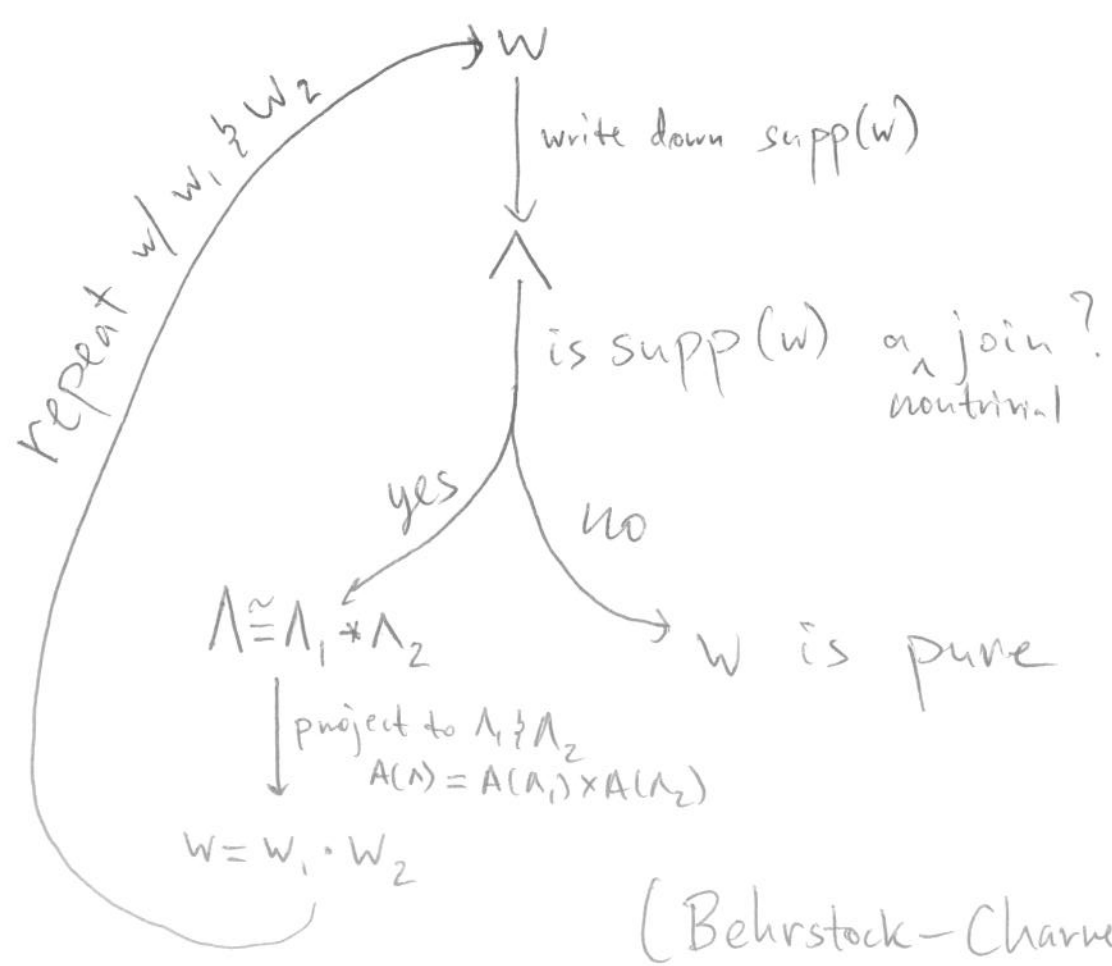 W
repeat w/ w₁ & w₂
write down supp(w)
Λ
is supp(w) a ‸ join?
nontrivial
yes
no
Λ ≅ Λ₁ * Λ₂
w is pure
project to Λ₁ & Λ₂
A(Λ) = A(Λ₁) × A(Λ₂)
W = W₁ · W₂
(Behrstock – Charne